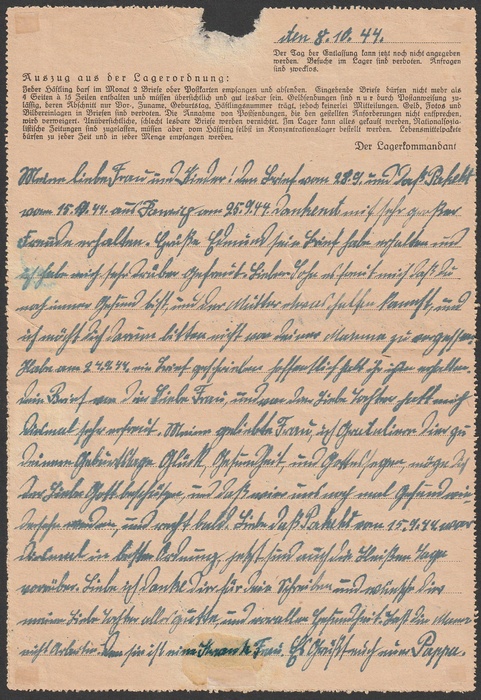 den 8.10.44.
Der Tag der Entlassung kann jetzt noch nicht angegeben
werden. Besuche im Lager sind verboten. Anfragen
sind zwecklos.
Auszug aus der Lagerordnung:
Jeder Häftling darf im Monat 2 Briefe oder Postkarten empfangen und absenden. Eingehende Briefe dürfen nicht mehr als
4 Seiten à 15 Zeilen enthalten und müssen übersichtlich und gut lesbar sein. Geldsendungen sind nur durch Postanweisung zu-
lässig, deren Abschnitt nur Vor-, Zuname, Geburtstag, Häftlingsnummer trägt, jedoch keinerlei Mitteilungen. Geld, Fotos und
Bildereinlagen in Briefen sind verboten. Die Annahme von Postsendungen, die den gestellten Anforderungen nicht entsprechen,
wird verweigert. Unübersichtliche, schlecht lesbare Briefe werden vernichtet. Im Lager kann alles gekauft werden. Nationalsozia-
listische Zeitungen sind zugelassen, müssen aber vom Häftling selbst im Konzentrationslager bestellt werden. Lebensmittelpakete
dürfen zu jeder Zeit und in jeder Menge empfangen werden.
Der Lagerkommandant
Meine liebe Frau und Kinder! den Brief vom 28.9. und daß Pakekt
vom 15.9.44. aus am 25.9.44. dankend mit sehr großer
Freude erhalten. Edmund sein Brief habe erhalten und
ich habe mich sehr drüber gefreut. Lieber Sohn es freut mich daß du
noch immer Gesund bist, und der Mutter helfen kannst, und
ich möcht dich darum bitten nicht von deiner Mamma zu vergessen.
Habe am 24.9.44. ein Brief geschrieben hoffentlich habt ihr ihn erhalten.
dein Brief von dir Liebe Frau, und von der Liebe Tochter hatt mich
diesmal sehr erfreut. Meine geliebte Frau, ich Gratuliere dier zu
deinem Geburtstage Glück, Gesundheit und Gottessegen, möge dich
der Liebe Gott beschützen, und daß wir uns noch mal Gesund wie-
dersehn werden, und recht bald. Liebe daß Pakekt vom 15.9.44. war
diesmal in bester Ordnung, jetzt sind auch die heißen Tage
vorüber. Liebe ich danke dier für dein Schreiben und wünsche dier
meine Liebe Tochter alles gutte und vor allen Gesundheit. Laß die Mama
nicht Arbeiten den sie ist eine Kranke Frau. Es Grüßt euch euer Pappa.